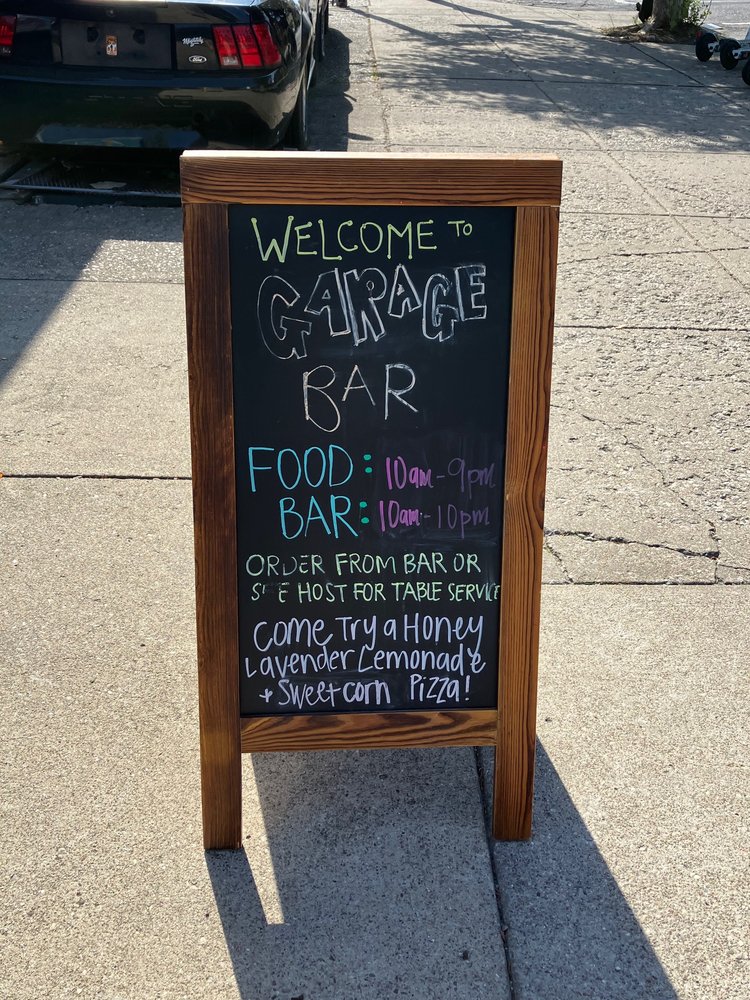 WELCOME TO
GARAGE
BAR
FOOD: 10am-9pm
BAR: 10am-10pm
ORDER FROM BAR OR
SEE HOST FOR TABLE SERVICE
Come Try a Honey
Lavender Lemonade
+ Sweetcorn Pizza!
Ford